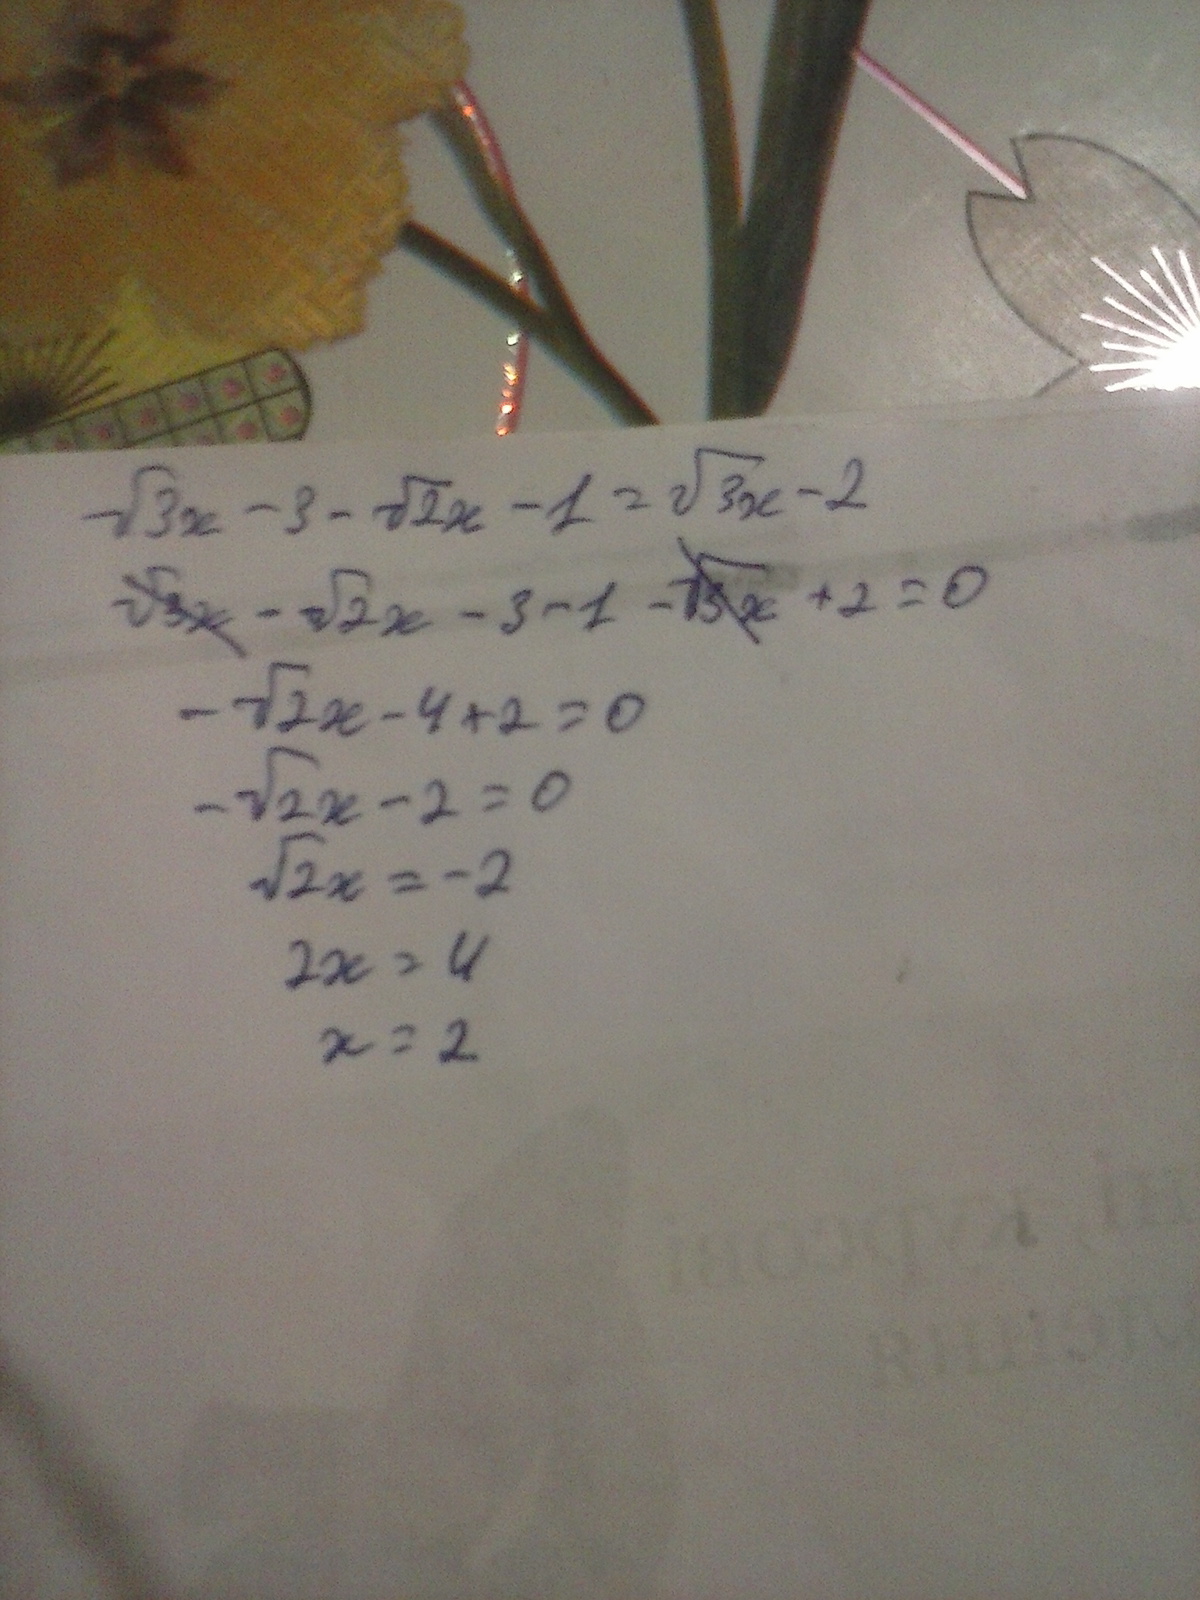 √3x - 3 - √2x - 1 = √3x - 2
√3x - √2x - 3 - 1 - √3x + 2 = 0
- √2x - 4 + 2 = 0
- √2x - 2 = 0
√2x = -2
2x = 4
x = 2